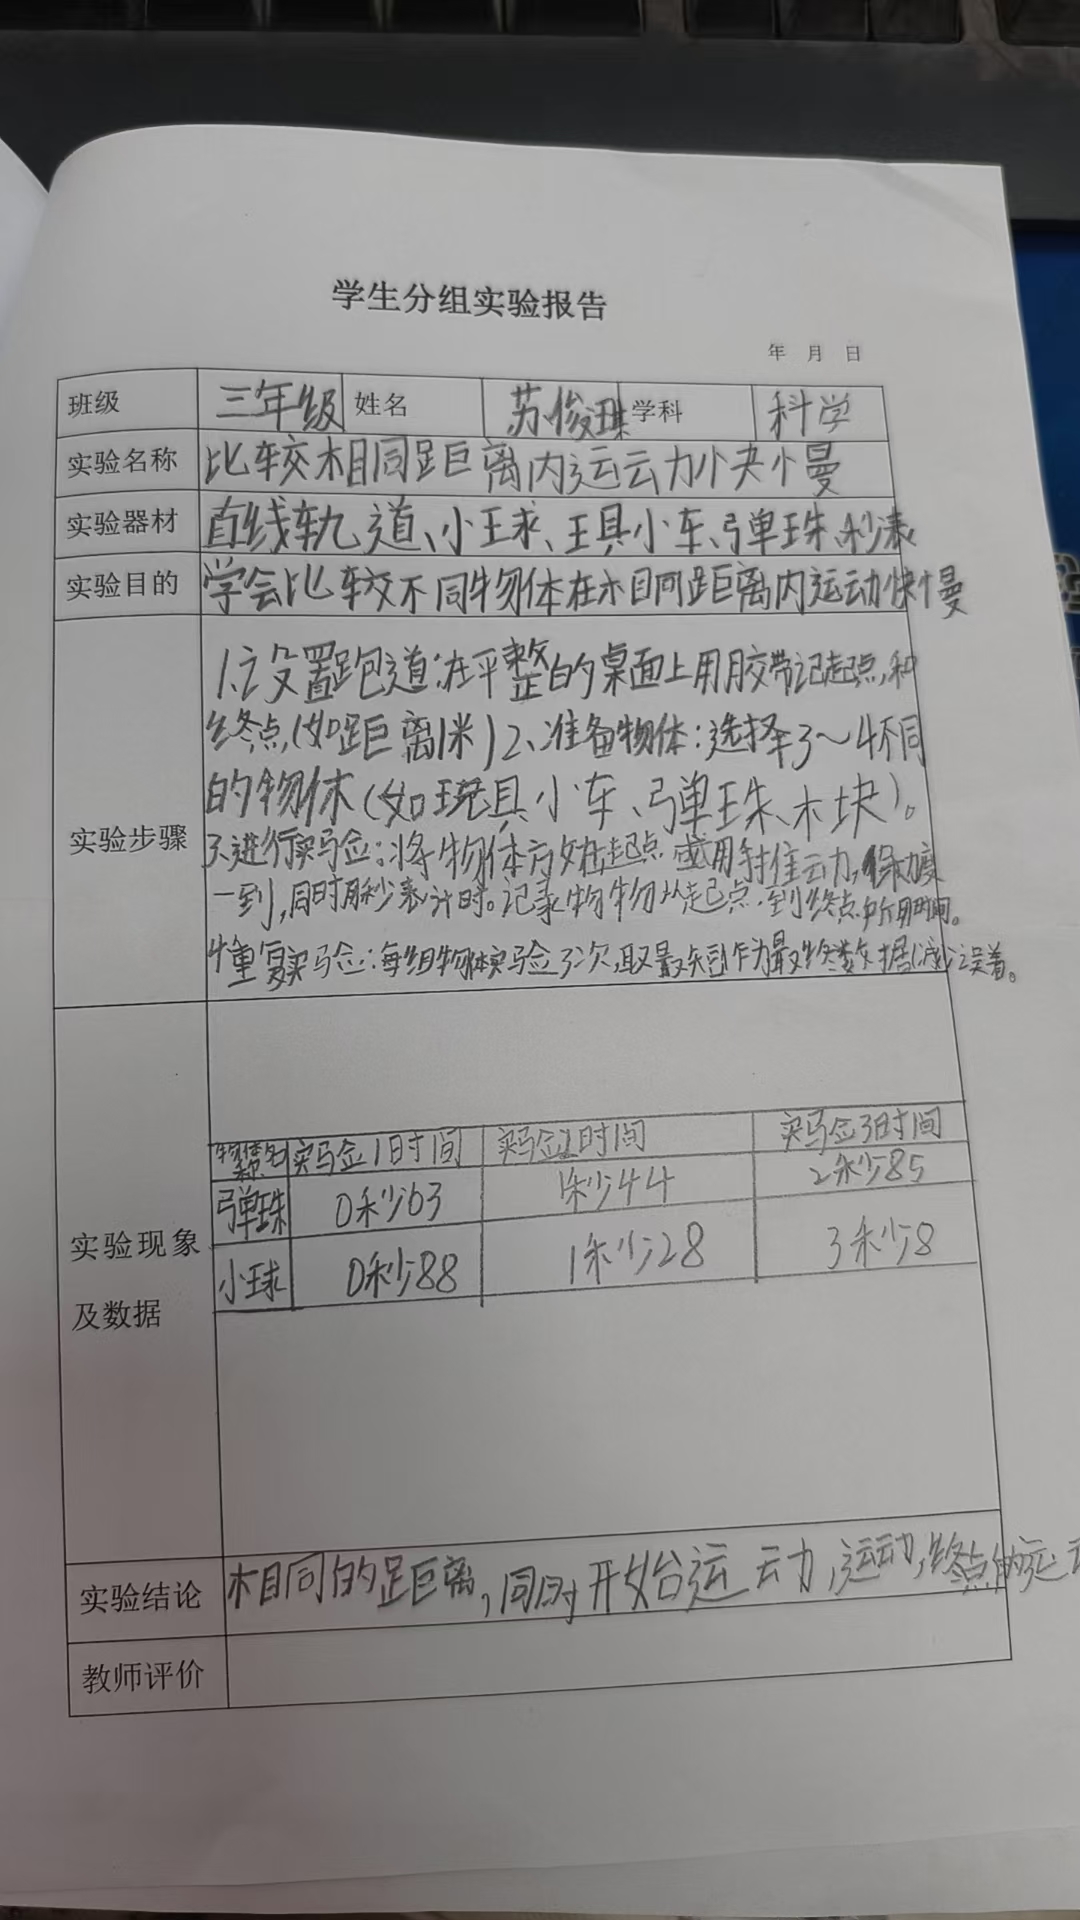 学生分组实验报告
年 月 日
班级 三年级 姓名 苏俊琪 学科 科学
实验名称 比较相同距离内运动快慢
实验器材 直线轨道、小球、玩具小车、弹珠、秒表
实验目的 学会比较不同物体在相同距离内运动快慢
实验步骤
1、设置跑道:在平整的桌面上用胶带记起点,和
终点,(如距离1米)2、准备物体:选择3~4不同
的物体(如玩具小车、弹珠、木块)。
3.进行实验:将物体放在起点 或用手推动,保
一到,同时用秒表计时。记录物物从起点,到终点所用时间。
4重复实验:每组物体实验3次,取最作为最终数据(减误差。
实验现象
及数据
物体名称 实验1时间 实验2时间 实验3时间
弹珠 0秒63 1秒44 2秒85
小球 0秒88 1秒28 3秒8
实验结论 相同的距离,同时开始运动,运动,终点的运
教师评价